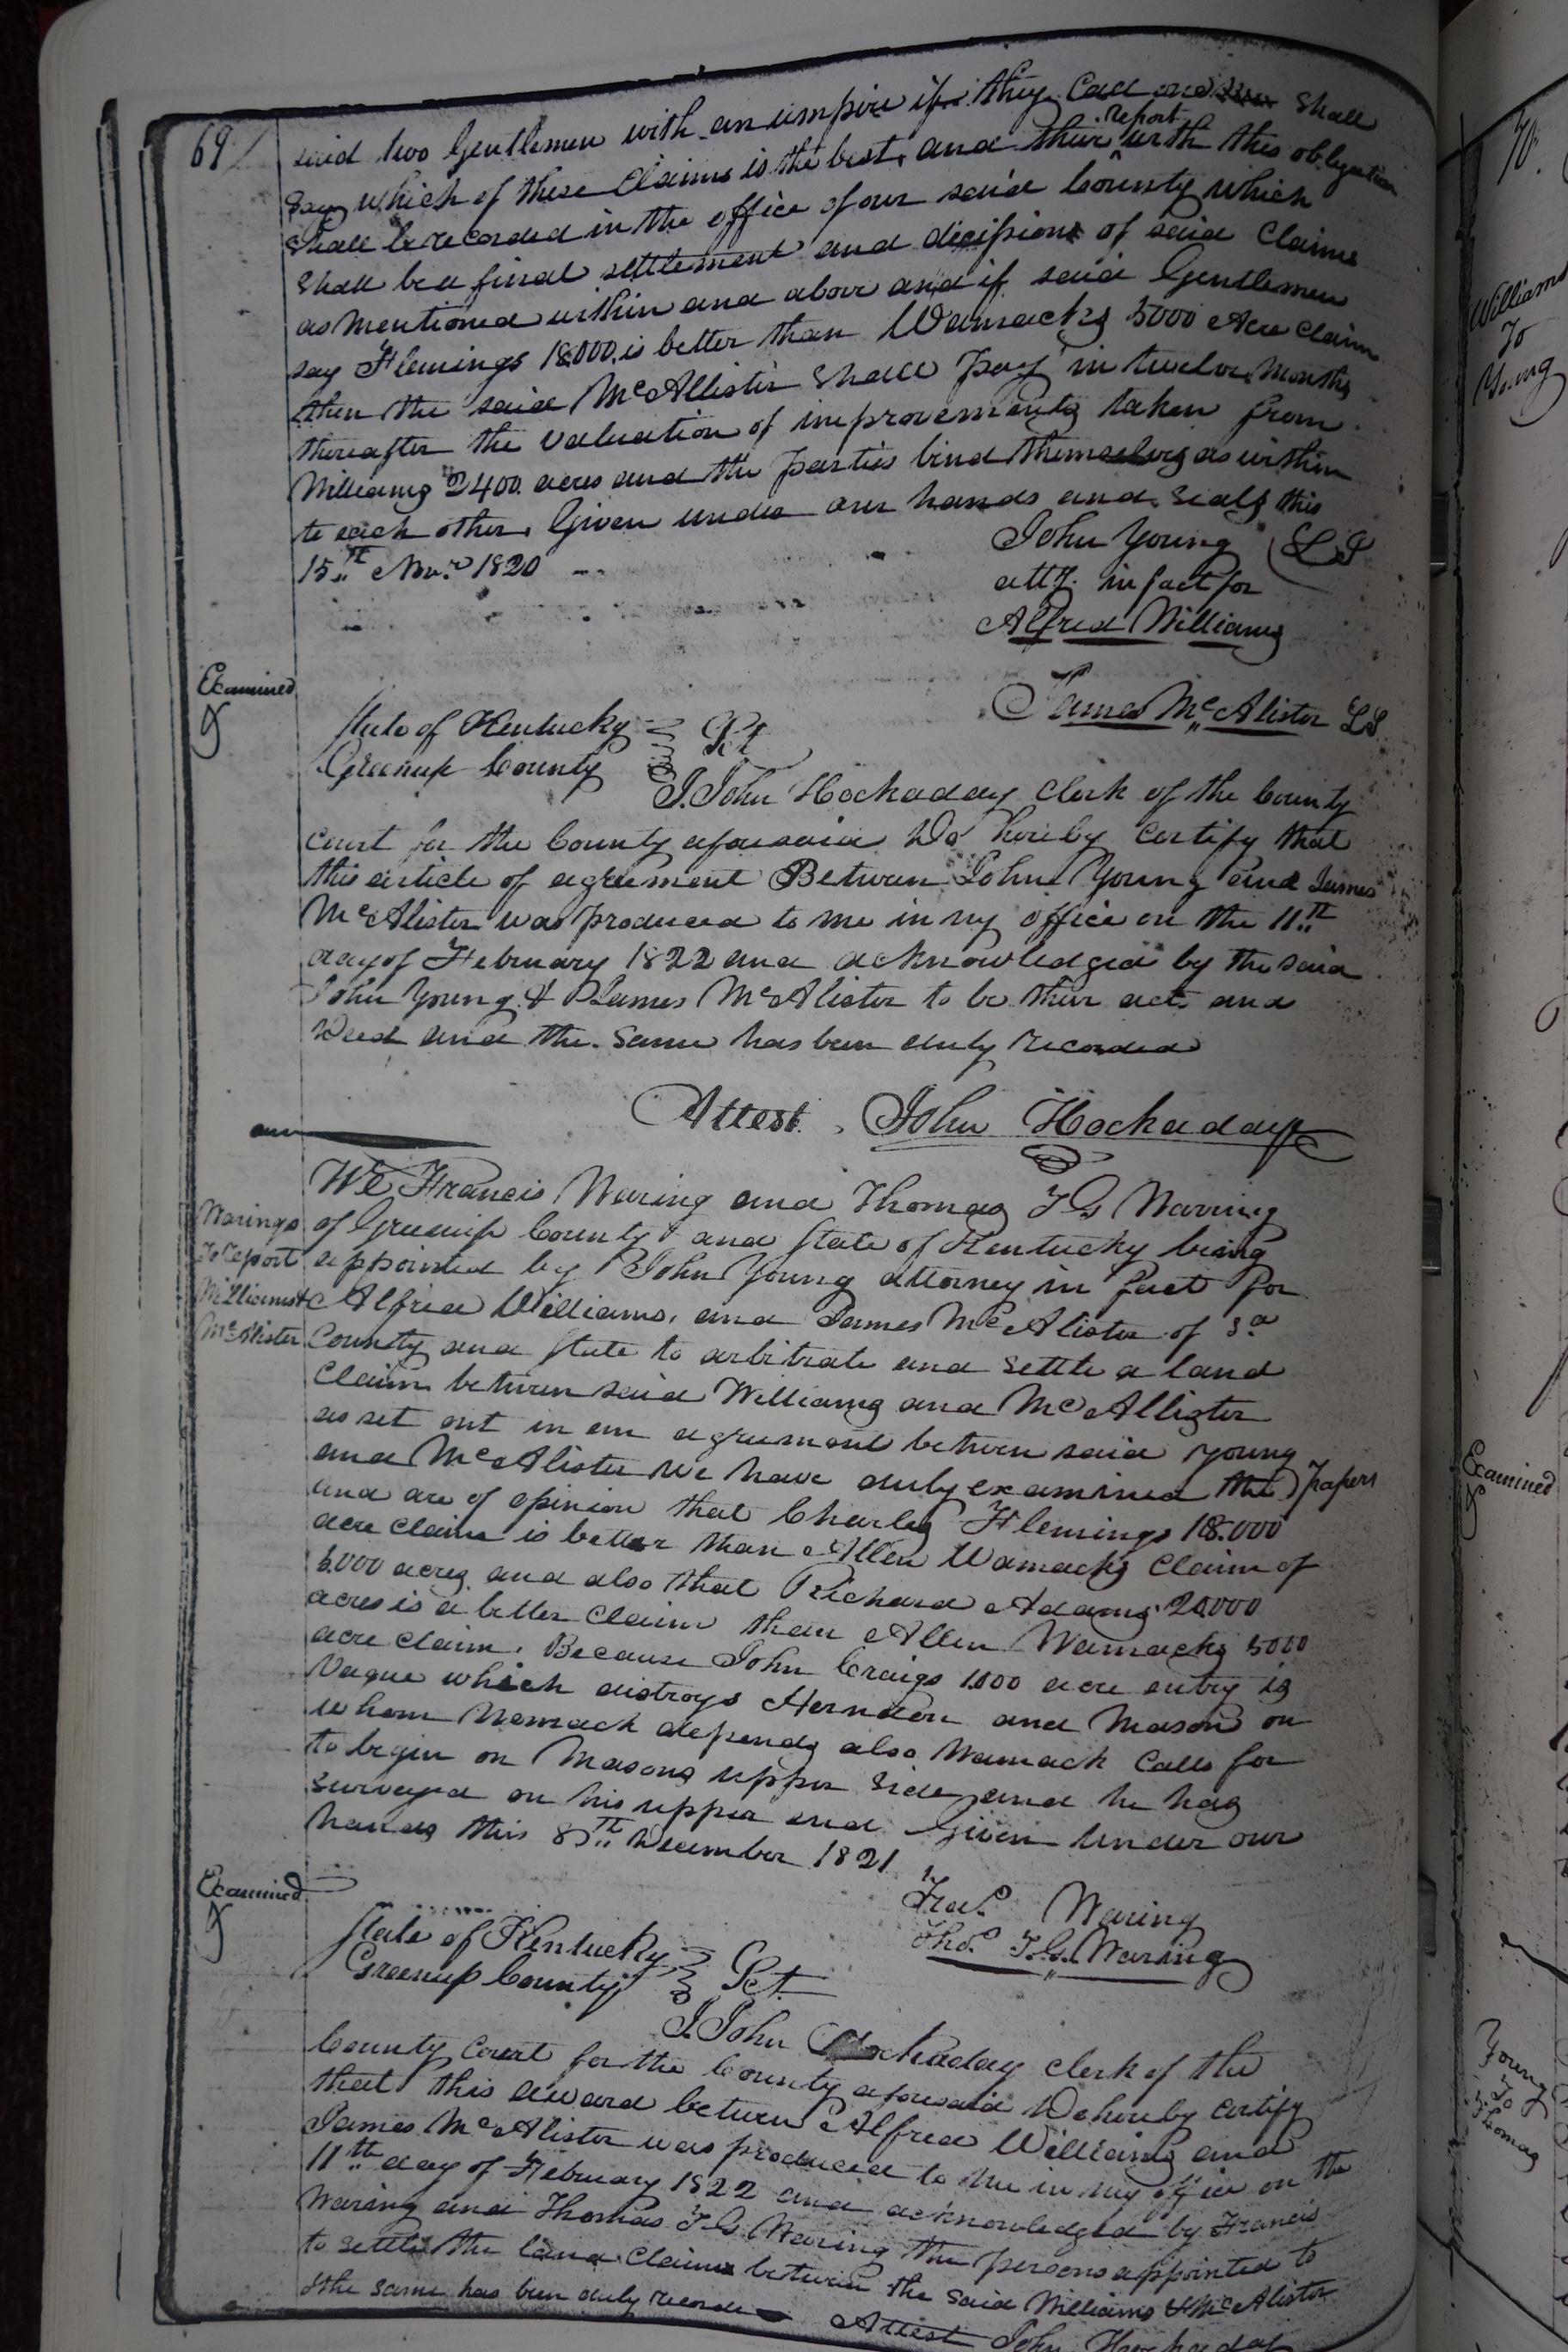 69
said two Gentlemen with an umpire if they call one shall
say which of these Claims is the best, and their report with this obligation
shall be recorded in the office of our said County which
shall be a final settlement and decission of said Claims
as mentioned within and above and if said Gentlemen
say Flemings 18.000 is better than Wamacks 5000 Acre Claim
then the said McAllister shall pay in twelve Months
thereafter the valuation of improvements taken from
Williams 2400 acres and the parties bind themselves as within
to each other. Given under our hands and seals this
15th Novr 1820
John Young LS
atty. in fact for
Alfred Williams
James McAlister LS
Examined
State of Kentucky
Greenup County Sct
I John Hockaday Clerk of the County
Court for the County aforesaid Do hereby Certify that
this article of agreement Between John Young and James
McAlister was produced to me in my office on the 11th
day of February 1822 and acknowledged by the said
John Young & James McAlister to be their act and
Deed and the same has been duly recorded
Attest. John Hockaday
Warings
To report
Williams &
McAlister
We Francis Waring and Thomas T G Waring
of Greenup County and State of Kentucky being
appointed by John Young attorney in fact for
Alfred Williams, and James McAlister of sd
County and State to arbitrate and settle a land
Claim between said Williams and McAllister
as set out in an agreement between said Young
and McAlister we have duly examined the papers
and are of opinion that Charles Flemings 18.000
acre claim is better than Allen Wamacks Claim of
5.000 acres and also that Richard Adams 20.000
acres is a better Claim than Allen Wamacks 5000
acre claim. Because John Craigs 1.000 acre entry is
Vague which distroys Herndon and Mason on
whom Womack depends also Wamack Calls for
to begin on Masons upper side and he has
surveyed on his upper end Given under our
hands this 8th December 1821
Fras. Waring
Thos. T.G. Waring
Examined
State of Kentucky
Greenup County Sct.
I John Hockaday Clerk of the
County Court for the County aforesaid Do hereby Certify
that this award between Alfred Williams and
James McAlister was produced to me in my office on the
11th day of February 1822 and acknowledged by Francis
Waring and Thomas T G Waring the persons appointed to
to settle the land Claims between the said Williams & McAlister
& the same has been duly recorded
Attest John Hockaday
70.
Williams
To
Young
Examined
Young
To
Thomas